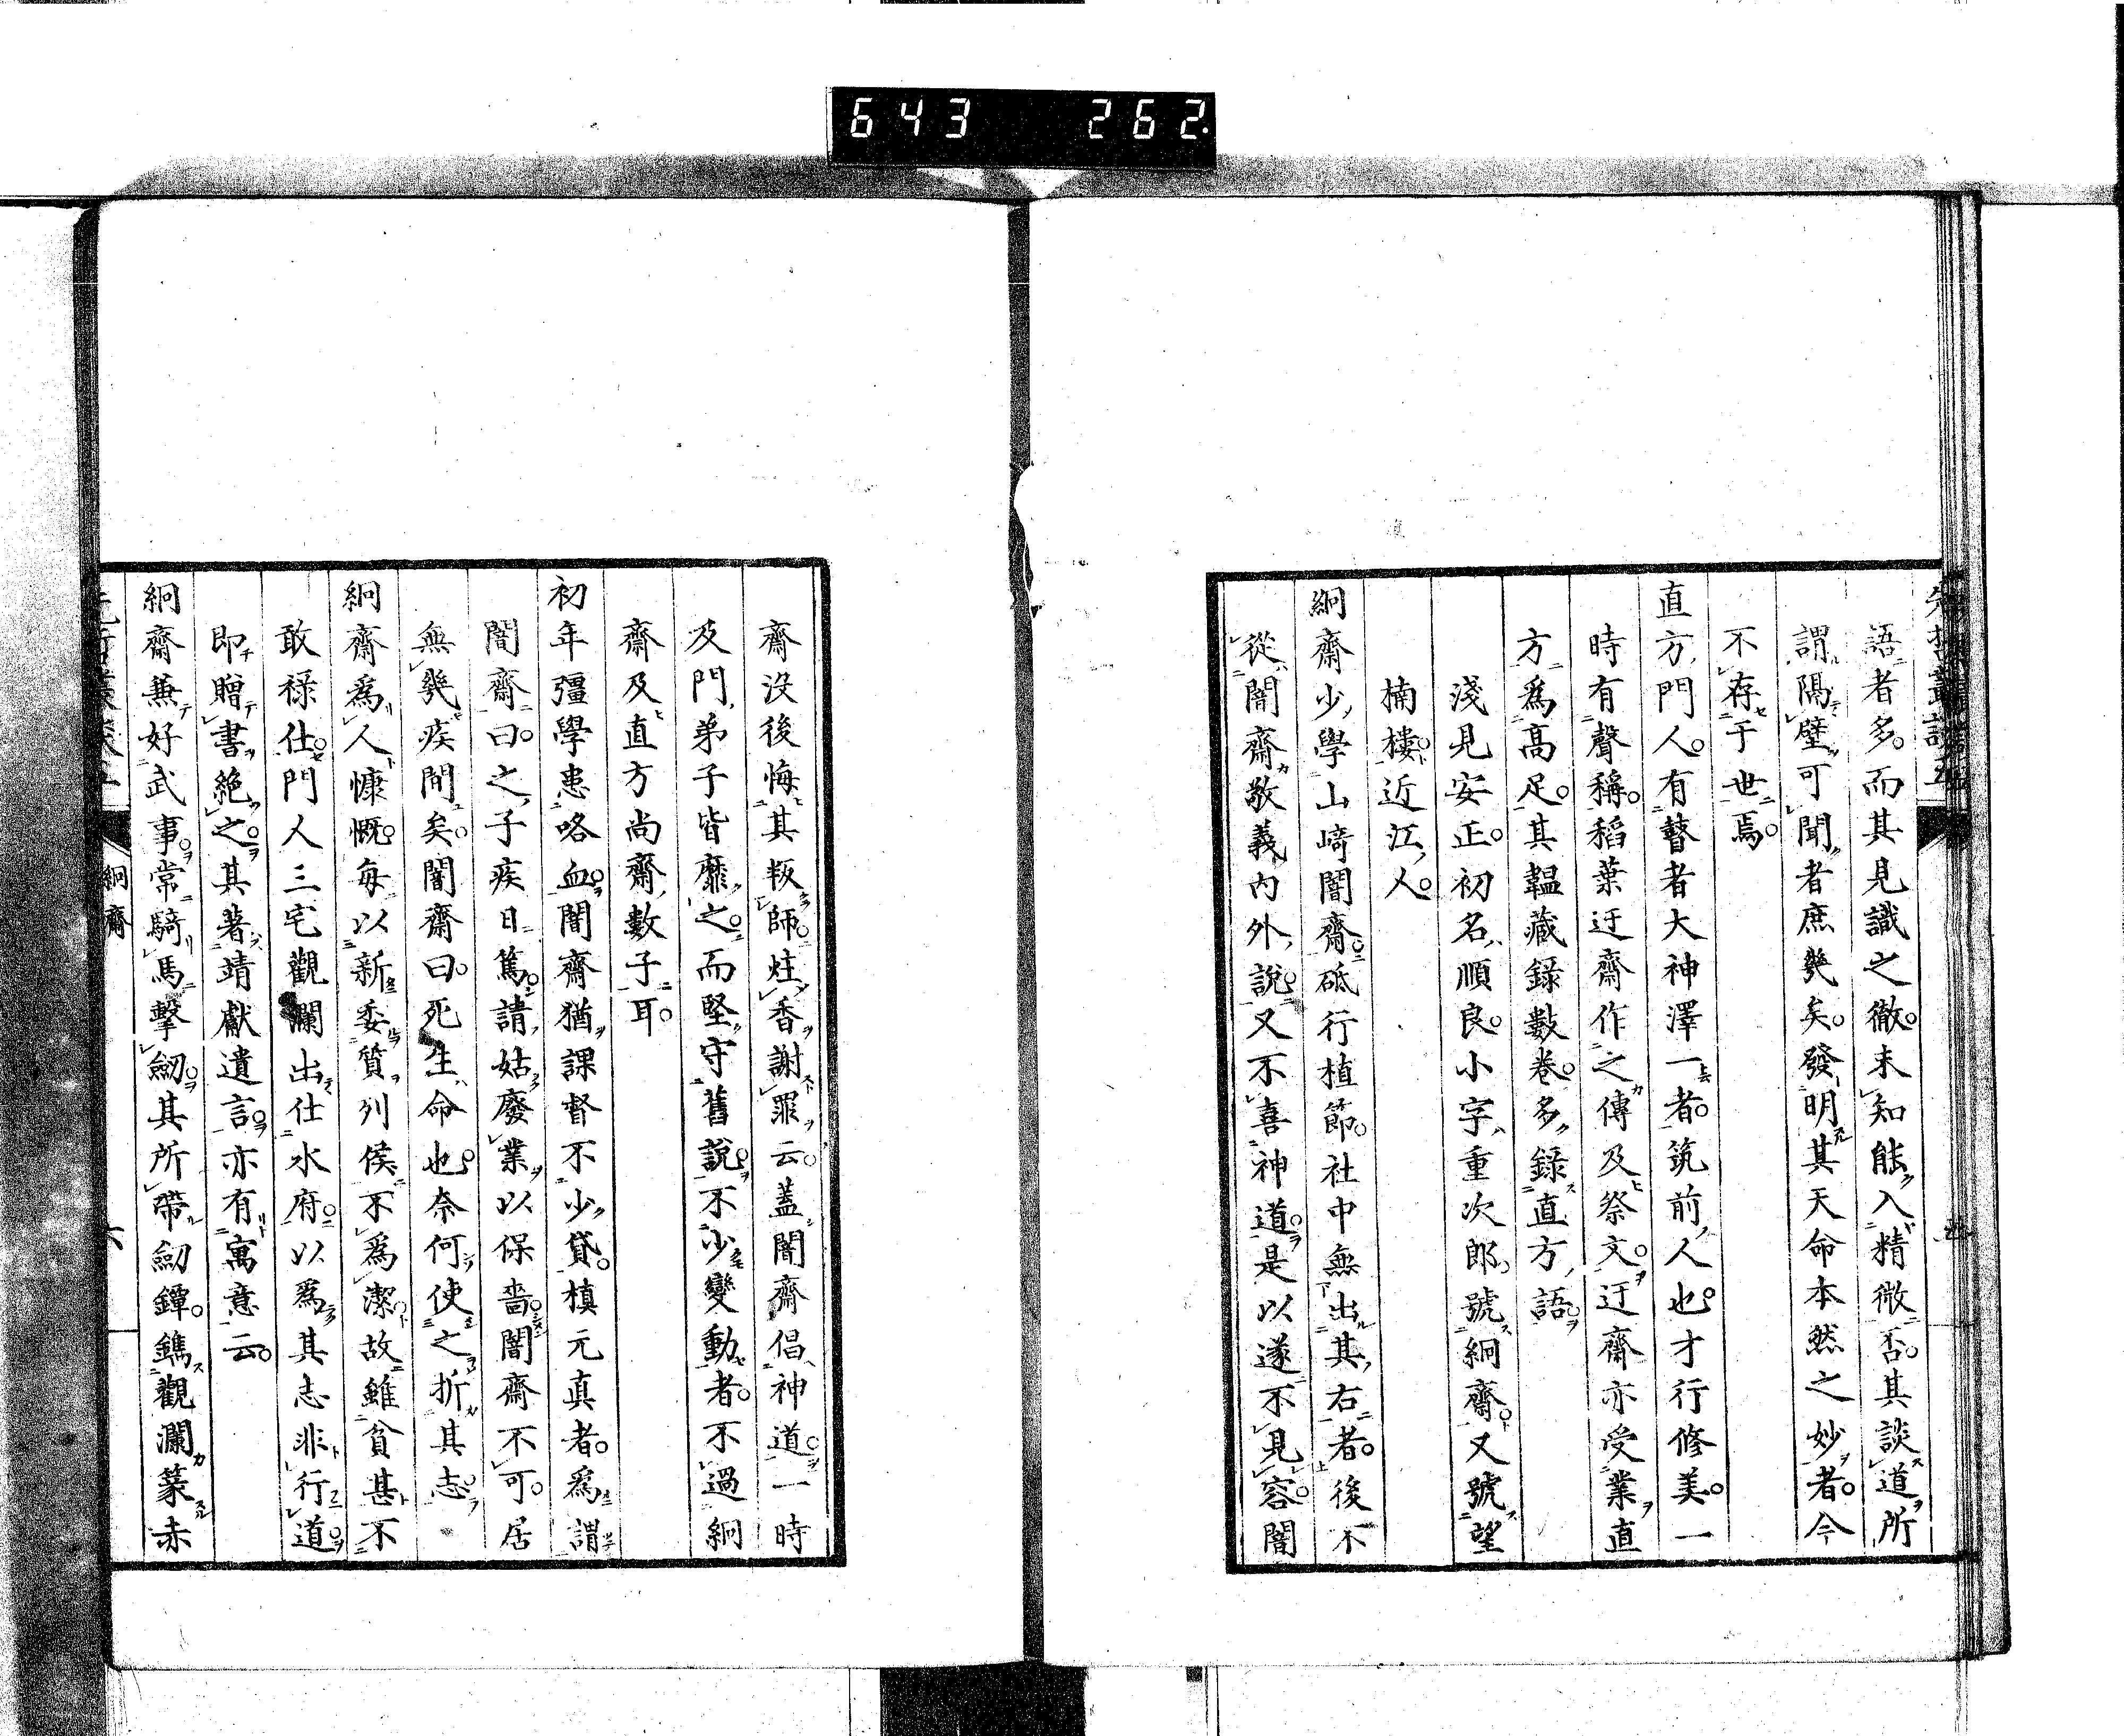 643 262
語者多。而其見識之徹。未知能入精微否。其談道所
謂隔壁可聞者庶幾矣。發明其天命本然之妙者。今
不存于世焉。
直方門人。有瞽者大神澤一者。筑前人也。才行修美。一
時有聲稱。稻葉迂齋作之傳及祭文。迂齋亦受業直
方爲高足。其韞藏錄數卷。多錄直方語。
淺見安正。初名順良。小字重次郎。號絅齋。又號望
楠樓。近江人。
絅齋少學山﨑闇齋。砥行植節。社中無出其右者。後不
從闇齋敬義內外說。又不喜神道。是以遂不見容。闇
齋沒後悔其叛師。炷香謝罪云。蓋闇齋倡神道。一時
及門弟子皆靡之。而堅守舊說。不少變動者。不過絅
齋及直方尚齋數子耳。
初年彊學患咯血。闇齋猶課督不少貸。槙元真者。爲謂
闇齋曰。之子疾日篤。請姑廢業以保嗇。闇齋不可。居
無幾疾間矣。闇齋曰。死生命也。奈何使之折其志
絅齋爲人慷慨。每以新委質列侯不爲潔。故雖貧甚不
敢祿仕。門人三宅觀瀾出仕水府。以爲其志非行道。
即贈書絕之。其著靖獻遺言。亦有寓意云。
絅齋兼好武事。常騎馬擊劒。其所帶劒鐔。鐫觀瀾篆赤
絅齋
六